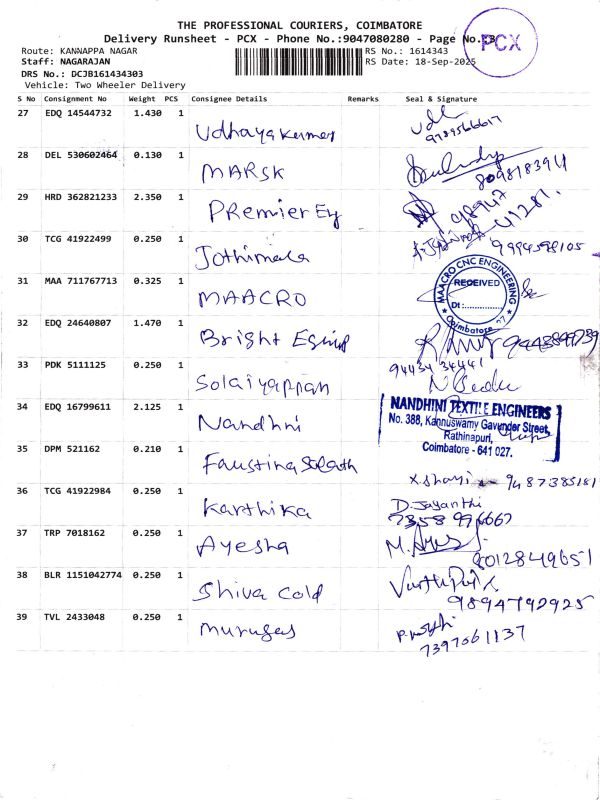 THE PROFESSIONAL COURIERS, COIMBATORE
Delivery Runsheet - PCX - Phone No.:9047080280 - Page No.:3
PCX
Route: KANNAPPA NAGAR
RS No.: 1614343
Staff: NAGARAJAN
RS Date: 18-Sep-2025
DRS No.: DCJB161434303
Vehicle: Two Wheeler Delivery
S No Consignment No Weight PCS Consignee Details Remarks Seal & Signature
27 EDQ 14544732 1.430 1 Udhayakumar
28 DEL 530602464 0.130 1 MARSK
8098183941
29 HRD 362821233 2.350 1 PRemier Eg
30 TCG 41922499 0.250 1 Jothimala
9994598105
31 MAA 711767713 0.325 1 MAACRO
MAACRO CNC ENGINEERING
RECEIVED
Dt :
Coimbatore
32 EDQ 24640807 1.470 1 Bright
33 PDK 5111125 0.250 1 Solaiyappan
94434 34441
34 EDQ 16799611 2.125 1 Nandhni
NANDHINI TEXTILE ENGINEERS
No. 388, Kannuswamy Gavunder Street,
Rathinapuri,
Coimbatore - 641 027.
35 DPM 521162 0.210 1 Faustina
9487385181
36 TCG 41922984 0.250 1 Karthika
D. Jayanthi
7358 976667
37 TRP 7018162 0.250 1 Ayesha
8012849651
38 BLR 1151042774 0.250 1 Shiva cold
9894792925
39 TVL 2433048 0.250 1 muruges
7397561137